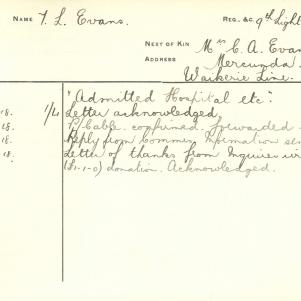 NAME T. L. Evans. REG. &C. 9th Light
NEXT OF KIN Mrs C. A. Evans
ADDRESS Mercunda
Waikerie Line.
"Admitted Hospital etc".
18. 1/4 Letter acknowledged.
18. Cable confirmed forwarded
18. Reply from Commn Information sent
18. Letter of thanks from Inquirer
(£1-1-0) donation. Acknowledged.